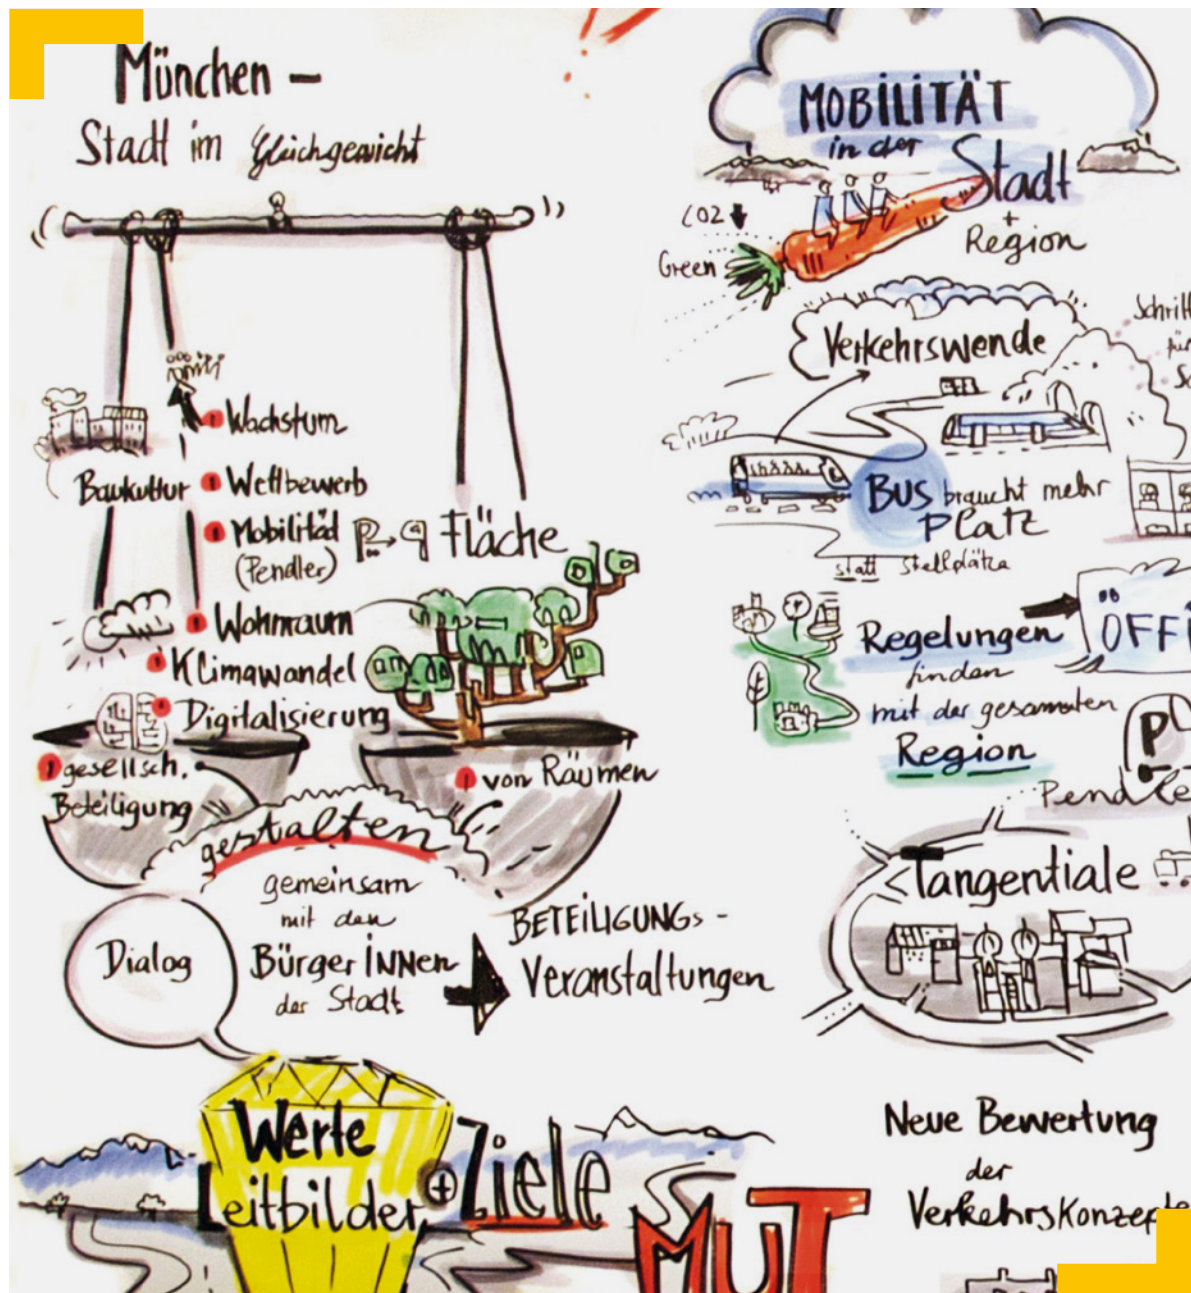 München –
Stadt im Gleichgewicht
Wachstum
Baukultur
Wettbewerb
Mobilität
(Pendler)
Fläche
Wohnraum
Klimawandel
Digitalisierung
gesellsch.
Beteiligung
von Räumen
gestalten
gemeinsam
mit den
BürgerINNen
der Stadt
BETEILIGUNGS-
Veranstaltungen
Dialog
Werte
Leitbilder
+ Ziele
MUT
MOBILITÄT
in der
Stadt
+
Region
CO2
Green
Verkehrswende
Schritt
für
BUS braucht mehr
Platz
statt Stellplätze
Regelungen
finden
mit der gesamten
Region
ÖFF
P
Pendle
Tangentiale
Neue Bewertung
der
Verkehrskonzepte